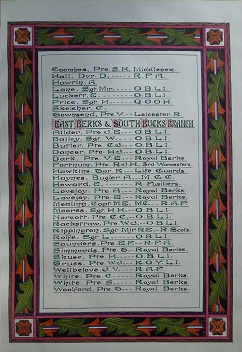 Coombes. Pte S.H. Middlesex.
Hall. Dvr D. ----- R F A.
Hawtin. A.
Lane. Sgt Mr. --- O B L I.
Luckett. E. ---- O B L I.
Price. Sgt H --- Q O O H.
Sketcher. C.
Townsend. Pte V.-- Leicester R.
EAST BERKS & SOUTH BUCKS BRANCH
Allder. Pte J.E. --- O B L I.
Bailey. Sgt W. ---- O B L I.
Butler. Pte C.J. -- O B L I.
Dancer. Pte H.J. -- O B L I.
Dark. Pte V.E. -- Royal Berks.
Fortnum. Pte R.J.H. 3rd Worcesters.
Hawkins. Cpr K. -- Life Guards.
Haynes. Bugler A. -- M G C.
Howard. E. ---- R. Fusiliers.
Lovejoy. Pte -- Royal Berks.
Lovejoy. Pte S. -- Royal Berks.
Meering. Cpr --- R A F.
Meeres. Sgt H.H. -- O B L I.
Norcott. Pte C.C. -- O B L I.
Rackstraw. Pte W.J. - O B L I.
Rippington. Sgt Mjr R.E. - R Scots.
Rolfe. Sgt L. ---- O B L I.
Saunders. Pte E.F. -- R F A.
Simmonds. Pte S. - Royal Berks.
Skuse. Pte H. --- O B L I.
Truss. Pte W.J. -- K O Y L I.
Wellbelove. J.V. --- R A F
White. Pte C. -- Royal Berks.
White. Pte S. -- Royal Berks.
Woolford. Pte S. -- Royal Berks.